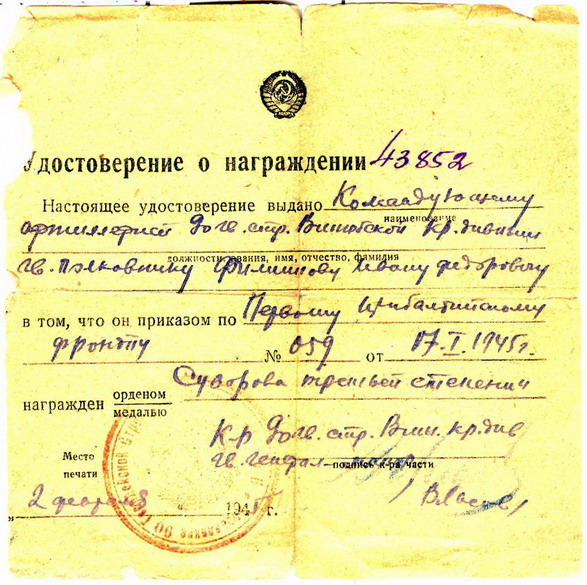 Удостоверение о награждении 43852
Настоящее удостоверение выдано Командующему
наименование
артиллерией 90 гв. стр. Витебской Кр. дивизии
должности звания, имя, отчество, фамилия
гв. полковнику Филиппову Ивану Федоровичу
в том, что он приказом по Первому Прибалтийскому
фронту № 059 от 17.I.1945г.
Суворова третьей степени
награжден орденом
медалью
К-р 90 гв. стр. Вит. кр. див
гв. генерал-
подпись к-ра части
Место
печати
2 февраля 1945 г.
/Власов/